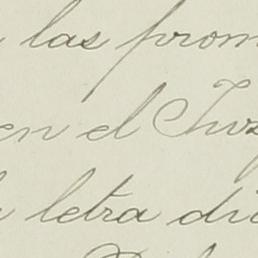 las prom
en el Juz
letra di